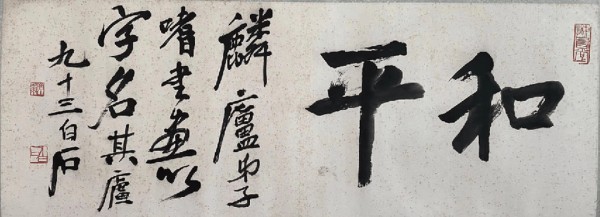 和平
麟廬弟子
嗜书画以
字名其廬
九十三白石